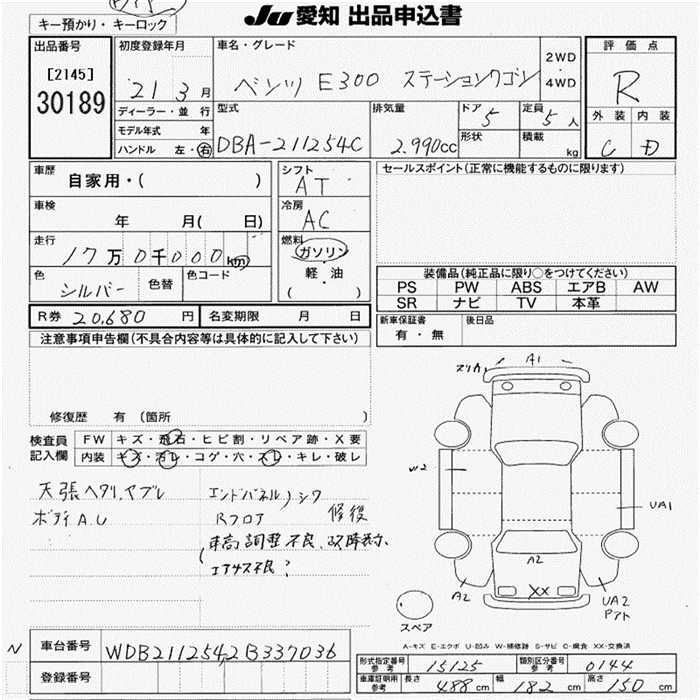 JU 愛知 出品申込書
キー預かり・キーロック
出品番号
[2145]
30189
初度登録年月
21 3月
ディーラー・並行
モデル年式 年
ハンドル 左・右
車名・グレード
ベンツ E300 ステーションワゴン
2WD
・
4WD
型式
DBA-211254C
排気量
2.990cc
ドア
5
定員
5人
形状
積載
kg
評価点
R
外装 内装
C D
車歴
自家用・( )
車検
年 月( 日)
走行
17万0千000km
色
シルバー
色替
色コード
シフト
AT
冷房
AC
燃料
ガソリン
軽・油
( )
セールスポイント(正常に機能するものに限ります)
装備品(純正品に限り○をつけてください)
PS PW ABS エアB AW
SR ナビ TV 本革
新車保証書
有・無
後日品
R券 20,680 円 名変期限 月 日
注意事項申告欄(不具合内容等は具体的に記入して下さい)
修復歴 有(箇所 )
検査員
記入欄
FW キズ・飛石・ヒビ割・リペア跡・X要
内装 キズ・汚レ・コゲ・穴・スレ・キレ・破レ
天張ヘタリ、ヤブレ
ボディA.U
エンドパネル)シワ
Rフロア 修復
車高調整不良、
エアサス不良?
スリA1
A1
W2
UA1
A2
XX
A2
UA2
スペア
A-キズ E-エクボ U-凹み W-補修跡 S-サビ C-腐食 XX-交換済
N
車台番号 WDB2112542B337036
登録番号
形式指定番号
参考
15125
類別区分番号
参考
0144
車庫証明用
参考
長さ 488 cm 幅 182 cm 高さ 150 cm